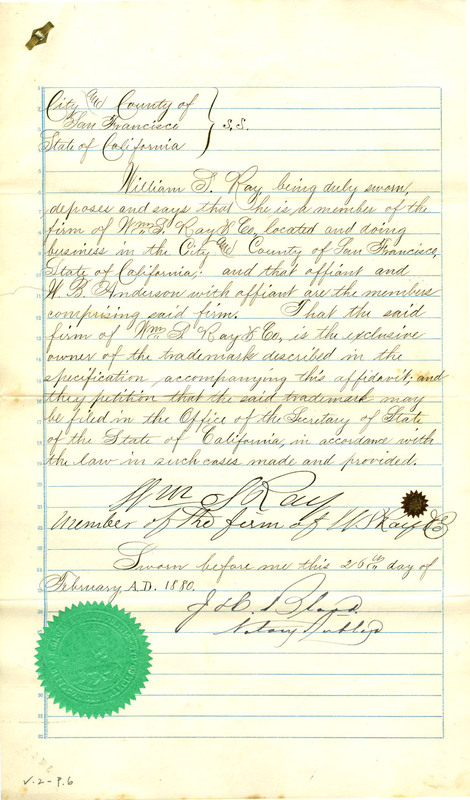 City and County of
San Francisco } S.S.
State of California
William S. Kay, being duly sworn,
deposes and says that he is a member of the
firm of Wm. S. Kay & Co, located and doing
business in the City and County of San Francisco,
State of California: and that affiant and
W. B. Anderson with affiant are the members
comprising said firm. That the said
firm of Wm. S Kay & Co, is the exclusive
owner of the trademark described in the
specification accompanying this affidavit; and
they petition that the said trademark may
be filed in the Office of the Secretary of State
of the State of California, in accordance with
the law in such cases made and provided.
Wm S Kay
Member of the firm of W S Kay & Co
Sworn before me this 26th day of
February A.D. 1880.
Notary Public
v.2-P.6